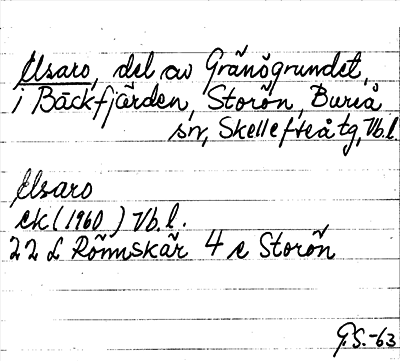 Elsaro, del av Gränögrundet,
i Bäckfjärden, Storön, Bureå
sn, Skellefteå tg, Vb.l.
Elsaro
ek (1960) Vb.l.
22 L Rönnskär 4 c Storön
G.S.-63